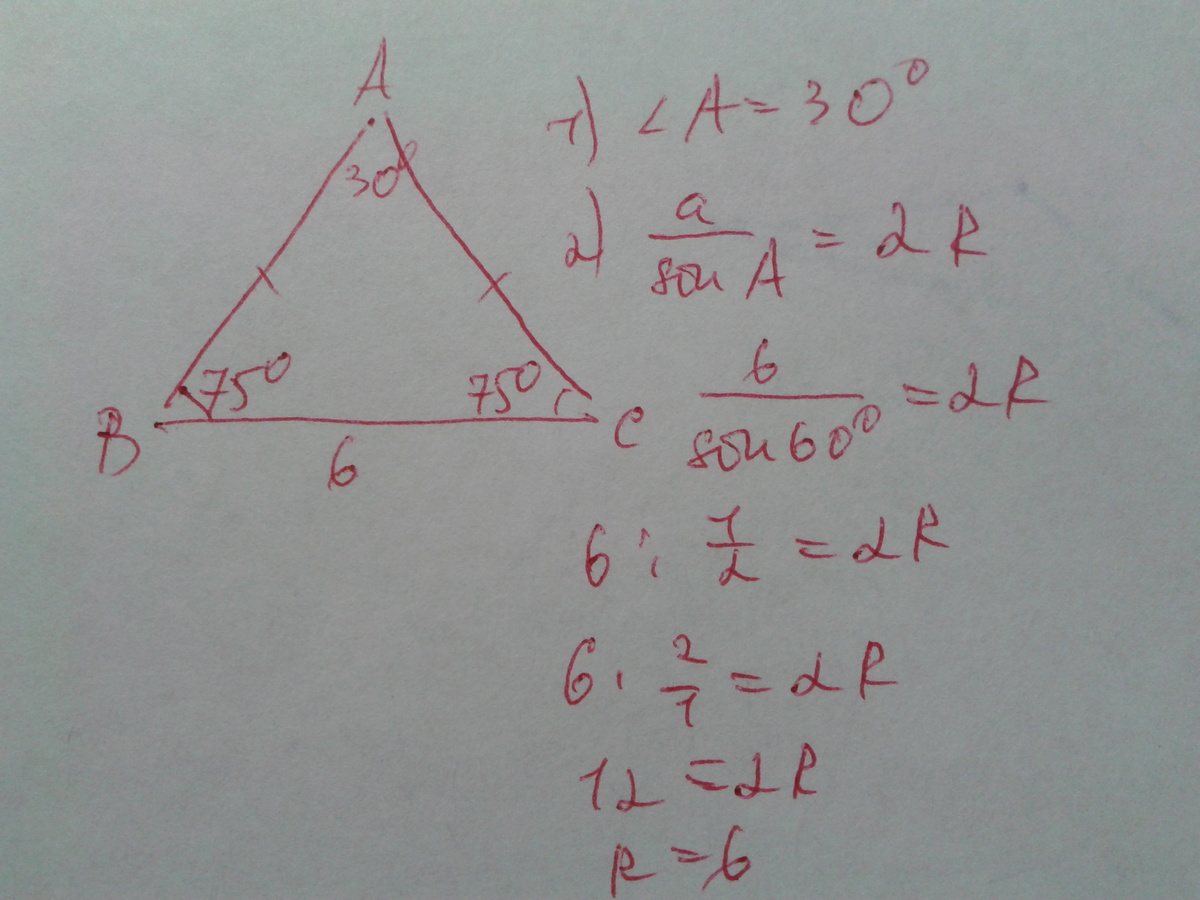 A
30°
75°
75°
B
6
C
1) ∠A = 30°
2) a/sin A = 2R
6/sin 60° = 2R
6 : 1/2 = 2R
6 · 2/1 = 2R
12 = 2R
R = 6